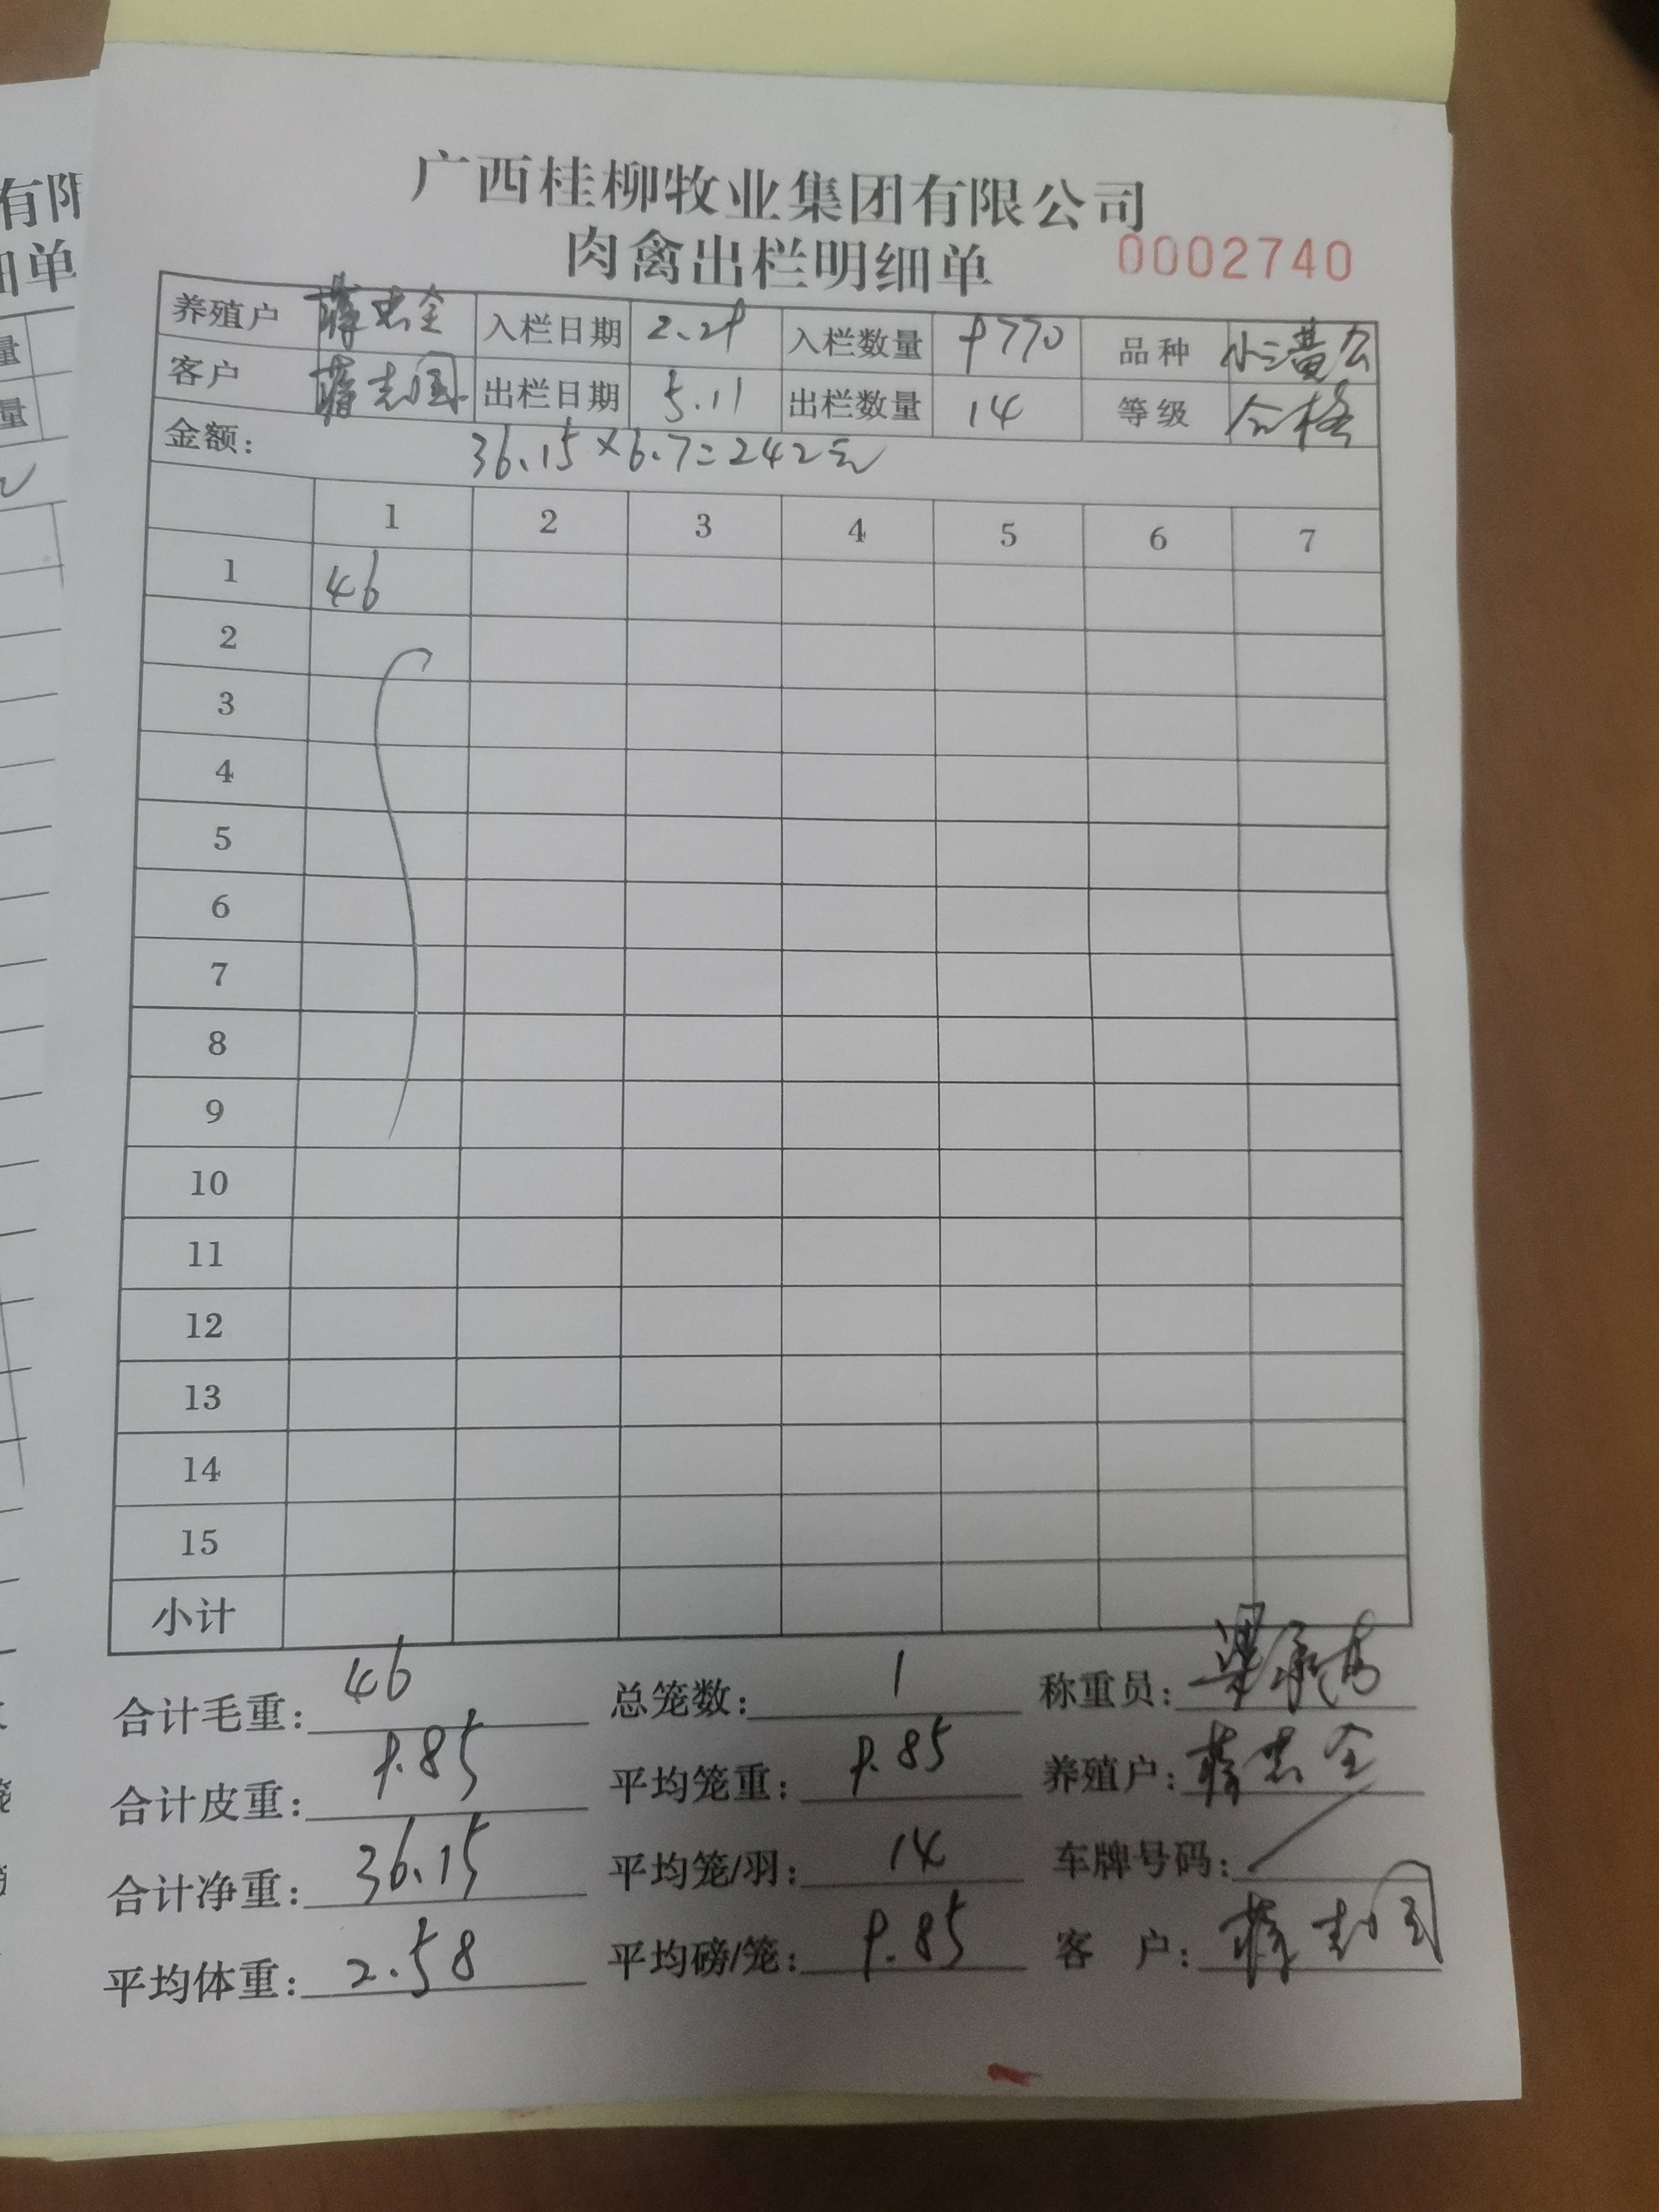 广西桂柳牧业集团有限公司
肉禽出栏明细单 0002740
养殖户 蒋忠全 入栏日期 2.29 入栏数量 9770 品种 小三黄公
客户 蒋志国 出栏日期 5.11 出栏数量 14 等级 合格
金额: 36.15×6.7=242元
1 2 3 4 5 6 7
1 46
2
3
4
5
6
7
8
9
10
11
12
13
14
15
小计
合计毛重: 46 总笼数: 1 称重员: 梁
合计皮重: 9.85 平均笼重: 9.85 养殖户: 蒋忠全
合计净重: 36.15 平均笼/羽: 14 车牌号码:
平均体重: 2.58 平均磅/笼: 9.85 客户: 蒋志国
有限
细单
量
量